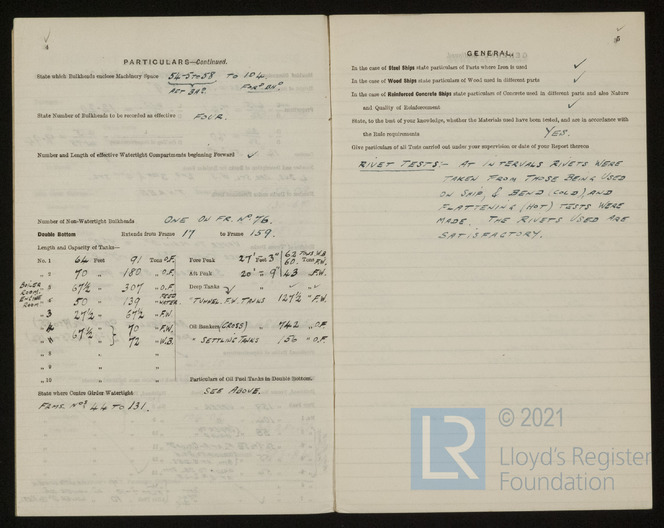 4
PARTICULARS—Continued.
State which Bulkheads enclose Machinery Space 54-5 TO 58 TO 104.
AFT BHD. FORD BHD.
State Number of Bulkheads to be recorded as effective FOUR.
Number and Length of effective Watertight Compartments beginning Forward ✓
Number of Non-Watertight Bulkheads ONE ON FR. No 76.
Double Bottom Extends from Frame 17 to Frame 159.
Length and Capacity of Tanks—
No. 1 64 Feet 91 Tons O.F.
„ 2 70 „ 180 „ O.F.
BOILER ROOM. 67½ „ 307 „ O.F.
ENGINE ROOM 50 „ 139 „ FEED WATER
„ 3 27½ „ 67½ „ F.W.
„ 4 67½ „ } 70 „ F.W.
„ „ } 72 „ W.B.
„ 8 „ „
„ 9 „ „
„ 10 „ „
Fore Peak 27' Feet 3" 62 TONS W.B.
60 Tons F.W.
Aft Peak 20' „ 9" 43 „ F.W.
Deep Tanks ✓ „ ✓ „ ✓
„ TUNNEL F.W. TANKS 127½ „ F.W.
Oil Bunkers (CROSS) „ 742 „ O.F.
„ SETTLING TANKS 156 „ O.F.
Particulars of Oil Fuel Tanks in Double Bottom.
SEE ABOVE.
State where Centre Girder Watertight
FRMS. Nos 44 TO 131.
5
GENERAL.
In the case of Steel Ships state particulars of Parts where Iron is used ✓
In the case of Wood Ships state particulars of Wood used in different parts ✓
In the case of Reinforced Concrete Ships state particulars of Concrete used in different parts and also Nature
and Quality of Reinforcement ✓
State, to the best of your knowledge, whether the Materials used have been tested, and are in accordance with
the Rule requirements YES.
Give particulars of all Tests carried out under your supervision or date of your Report thereon
RIVET TESTS:- AT INTERVALS RIVETS WERE
TAKEN FROM THOSE BEING USED
ON SHIP, & BEND (COLD) AND
FLATTENING (HOT) TESTS WERE
MADE. THE RIVETS USED ARE
SATISFACTORY.
LR
© 2021
Lloyd's Register
Foundation